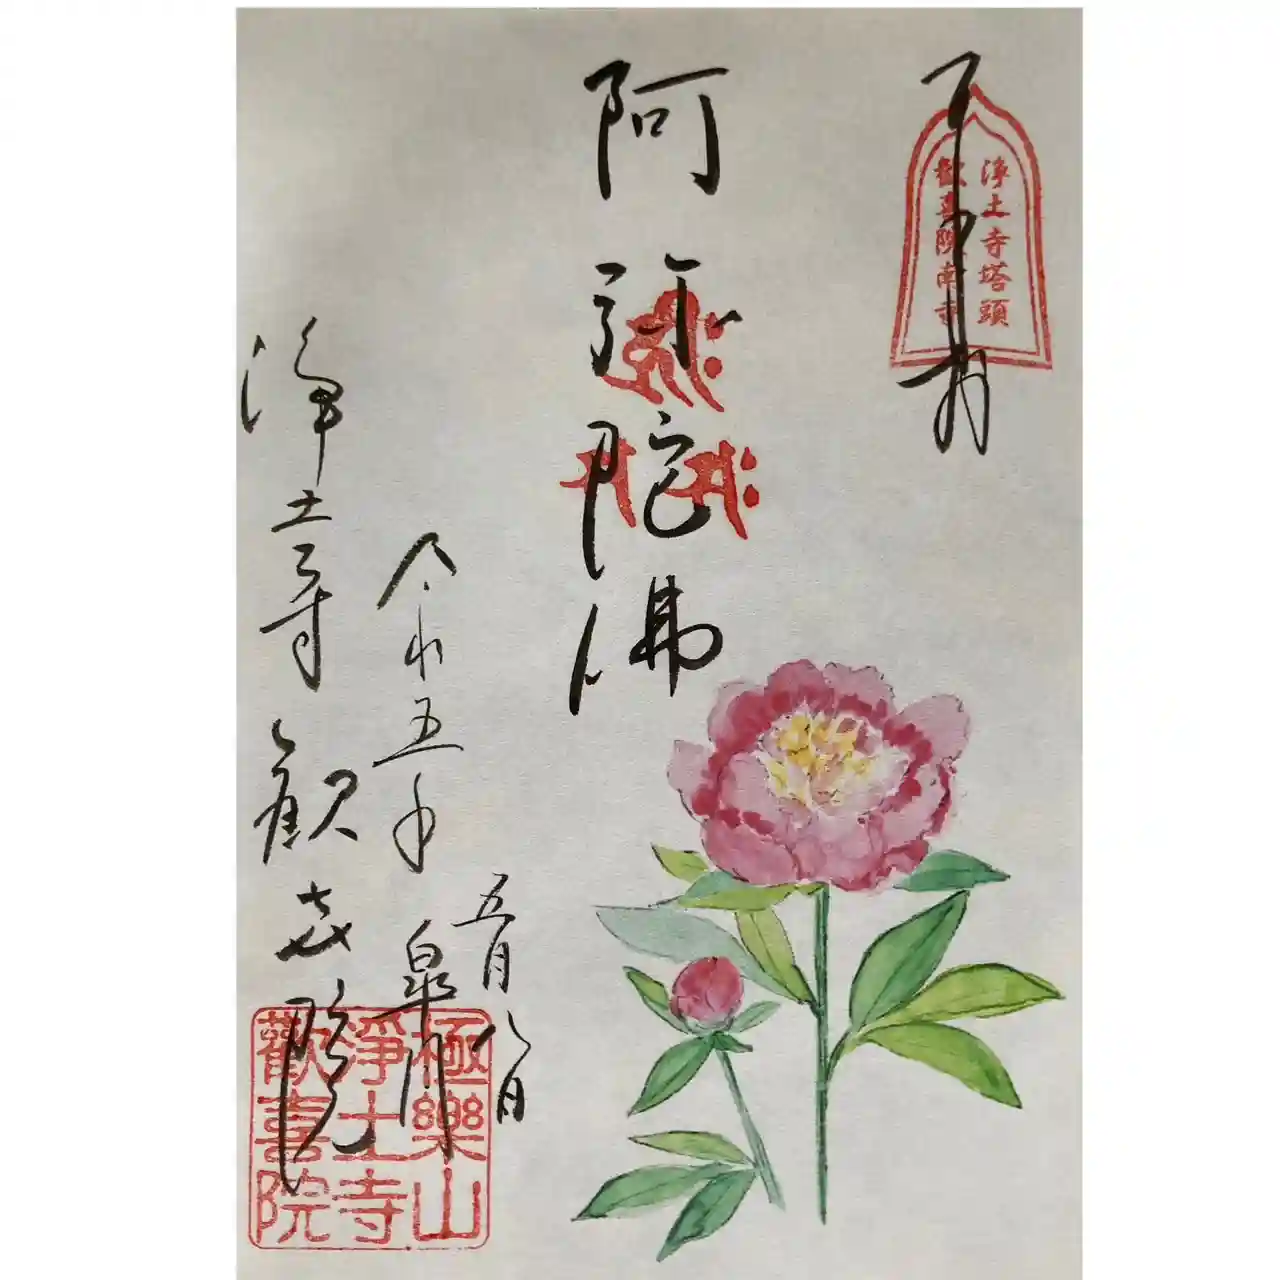 浄土寺塔頭
歓喜院南寺
阿弥陀佛
五月八日
令和五年 皐月
浄土寺 歓喜院
極樂山
淨土寺
歡喜院